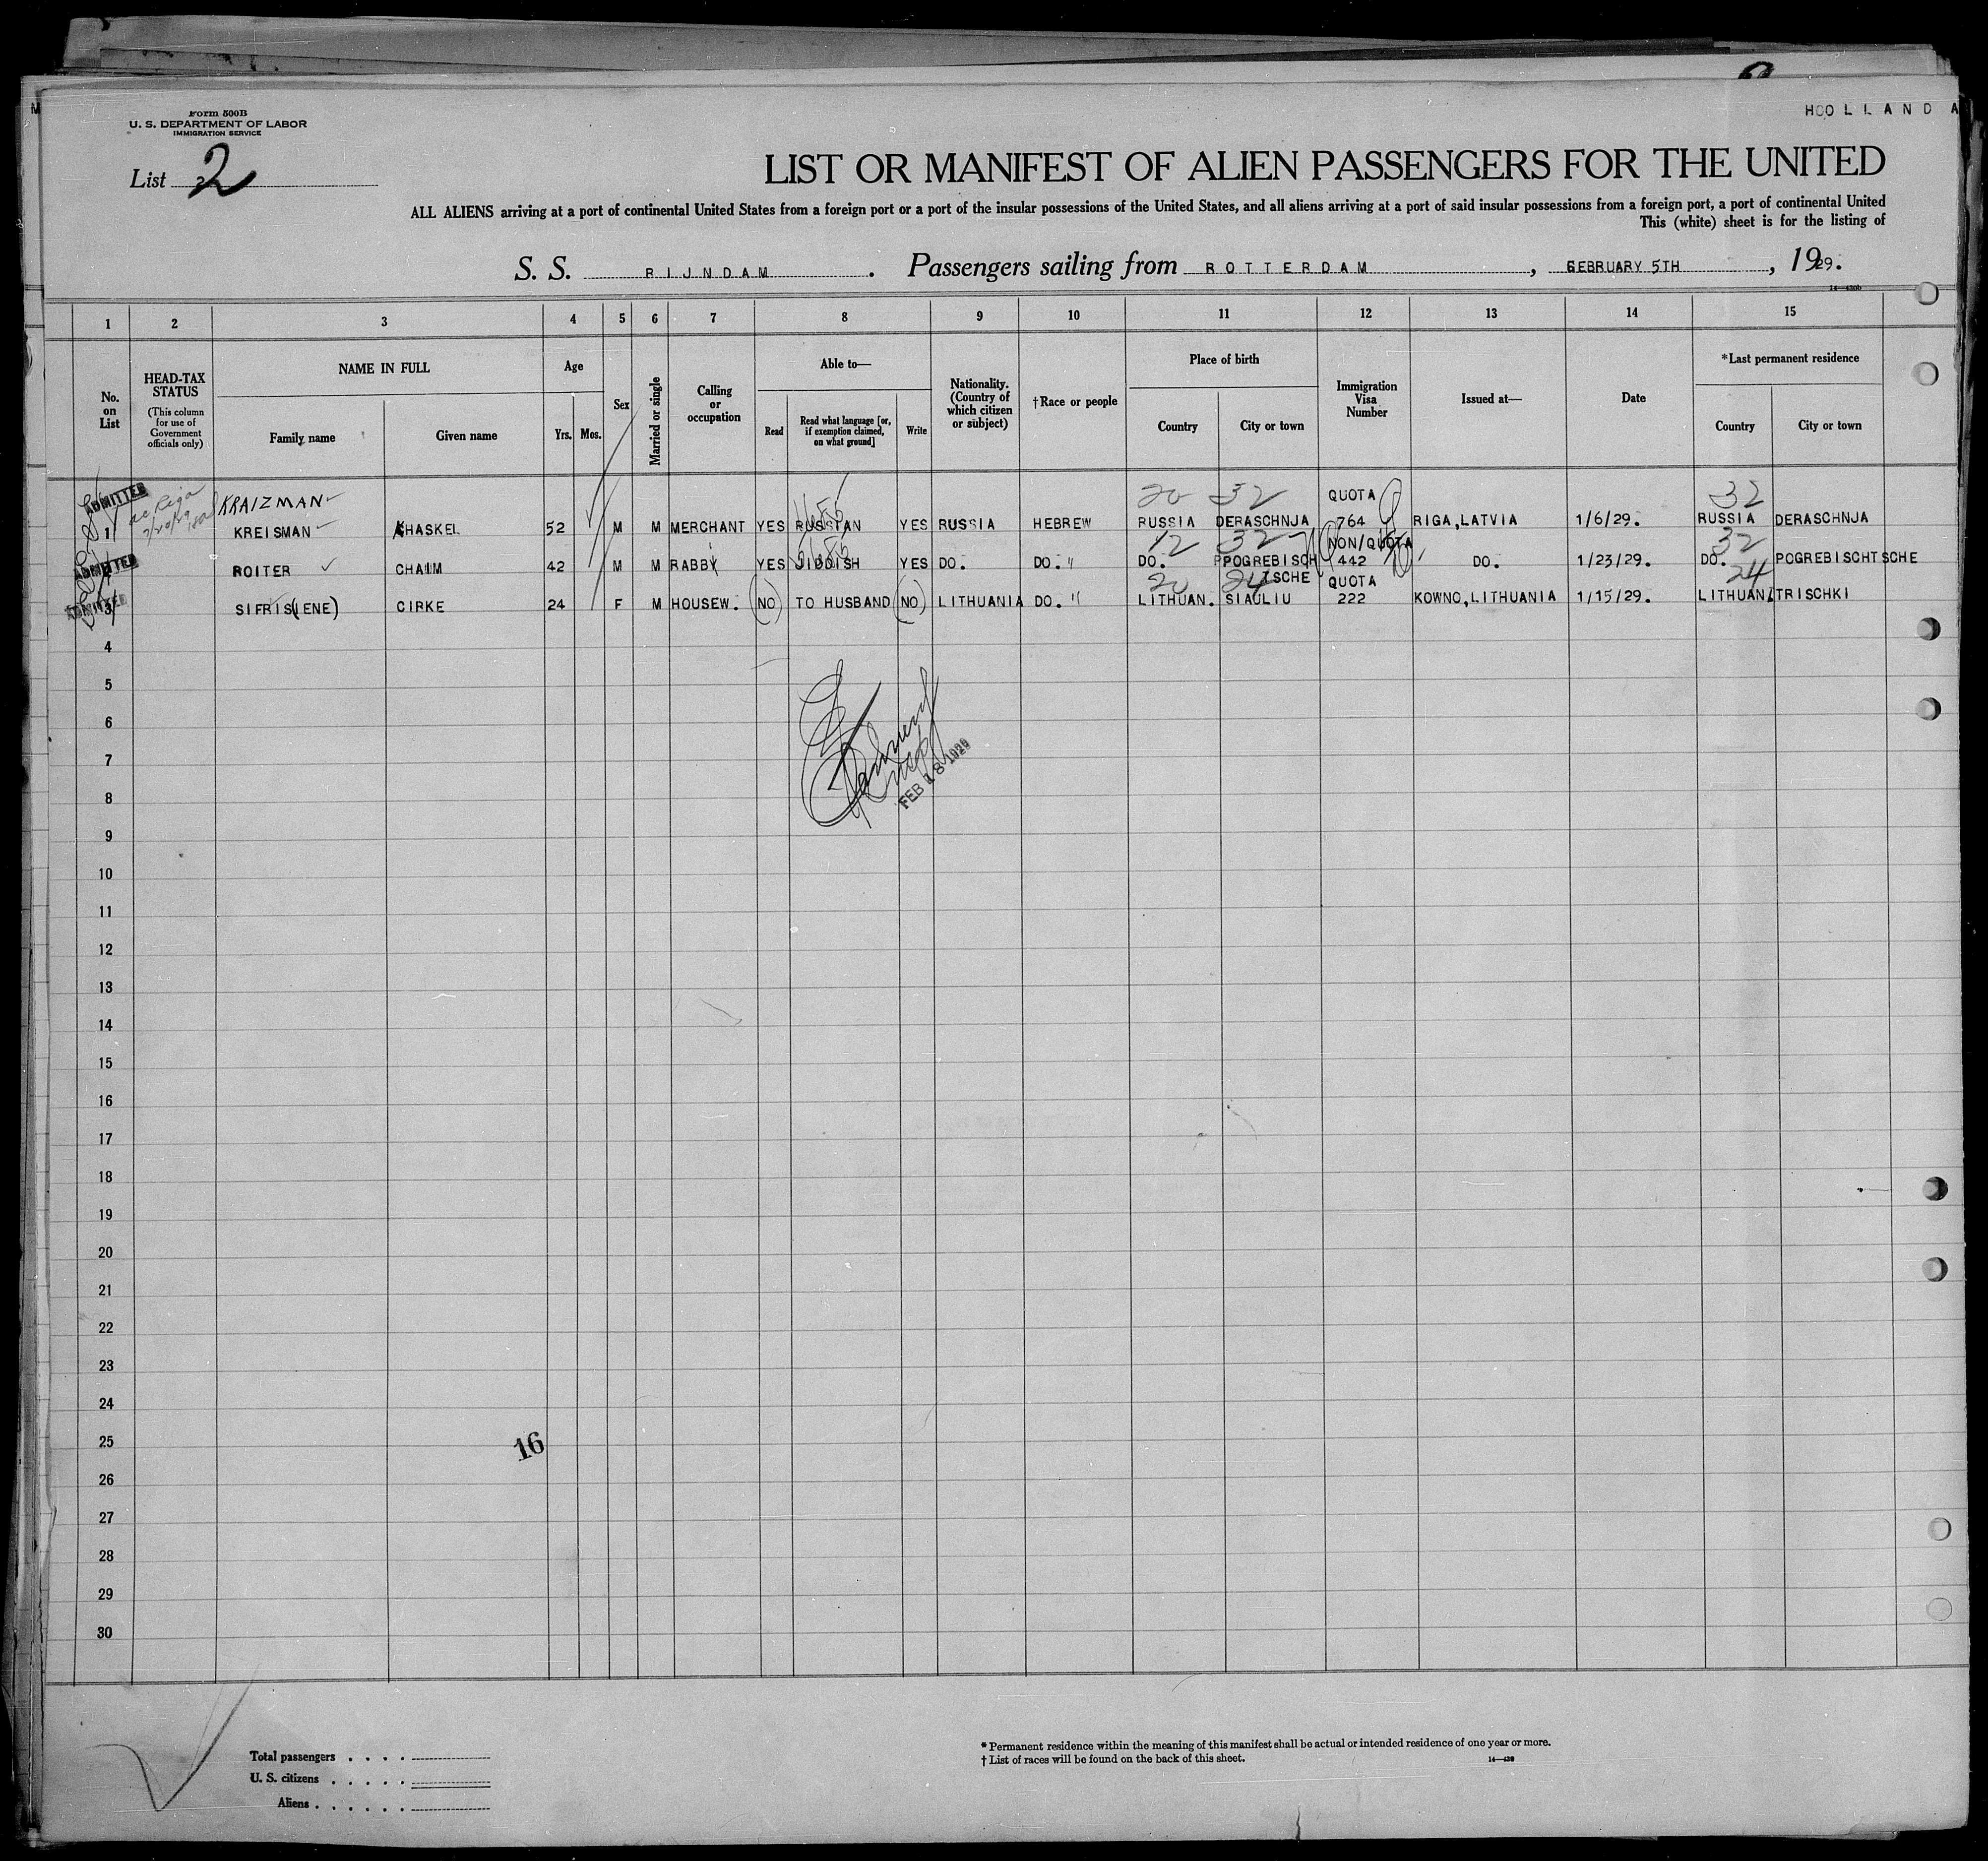 HOOLLAND A
Form 500B
U. S. DEPARTMENT OF LABOR
IMMIGRATION SERVICE
List 2
LIST OR MANIFEST OF ALIEN PASSENGERS FOR THE UNITED
ALL ALIENS arriving at a port of continental United States from a foreign port or a port of the insular possessions of the United States, and all aliens arriving at a port of said insular possessions from a foreign port, a port of continental United
This (white) sheet is for the listing of
S. S. RIJNDAM. Passengers sailing from ROTTERDAM, GEBRUARY 5TH, 1929.
14—430b
1 2 3 4 5 6 7 8 9 10 11 12 13 14 15
No. on List
HEAD-TAX STATUS
(This column for use of Government officials only)
NAME IN FULL
Family name Given name
Age
Yrs. Mos.
Sex
Married or single
Calling or occupation
Able to—
Read Read what language [or, if exemption claimed, on what ground] Write
Nationality. (Country of which citizen or subject)
†Race or people
Place of birth
Country City or town
Immigration Visa Number
Issued at—
Date
*Last permanent residence
Country City or town
ADMITTED KRAIZMAN 20 32 QUOTA 32
1 KREISMAN KHASKEL 52 M M MERCHANT YES RUSSIAN YES RUSSIA HEBREW RUSSIA DERASCHNJA 764 RIGA,LATVIA 1/6/29. RUSSIA DERASCHNJA
12 32 NON/QUOTA 32
ADMITTED ROITER CHAIM 42 M M RABBY YES JIDDISH YES DO. DO. " DO. PPOGREBISCH 442 DO. 1/23/29. DO. POGREBISCHTSCHE
20 24 TSCHE QUOTA 24
ADMITTED 3 SIFRIS(IENE) CIRKE 24 F M HOUSEW. (NO) TO HUSBAND (NO) LITHUANIA DO. " LITHUAN. SIAULIU 222 KOWNO,LITHUANIA 1/15/29. LITHUAN. TRISCHKI
4
5
6
7
FEB 18 1929
8
9
10
11
12
13
14
15
16
17
18
19
20
21
22
23
24
25
16
26
27
28
29
30
Total passengers . . . .
U. S. citizens . . . . .
Aliens . . . . . .
* Permanent residence within the meaning of this manifest shall be actual or intended residence of one year or more.
† List of races will be found on the back of this sheet.
14—430